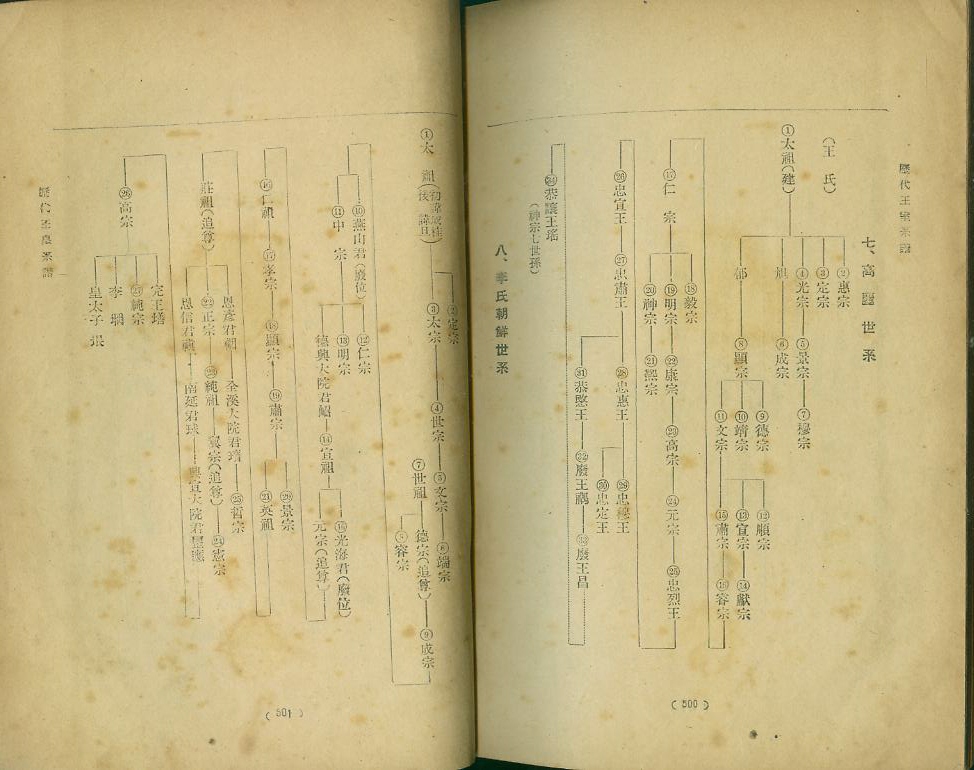 歷代王室系譜
七、高麗世系
(王氏)
①太祖(建)
②惠宗
③定宗
④光宗
⑤景宗
⑦穆宗
旭
⑥成宗
郁
⑧顯宗
⑨德宗
⑩靖宗
⑪文宗
⑫順宗
⑬宣宗
⑭獻宗
⑮肅宗
⑯睿宗
⑰仁宗
⑱毅宗
⑲明宗
㉒康宗
㉓高宗
㉔元宗
㉕忠烈王
⑳神宗
㉑熙宗
㉖忠宣王
㉗忠肅王
㉘忠惠王
㉙忠穆王
㉚忠定王
㉛恭愍王
㉜廢王禑
㉝廢王昌
㉞恭讓王瑤
(神宗七世孫)
八、李氏朝鮮世系
(500)
①太祖(初諱成桂後諱旦)
②定宗
③太宗
④世宗
⑤文宗
⑥端宗
⑦世祖
德宗(追尊)
⑨成宗
⑧睿宗
⑩燕山君(廢位)
⑪中宗
⑫仁宗
⑬明宗
德興大院君岹
⑭宣祖
⑮光海君(廢位)
元宗(追尊)
⑯仁祖
⑰孝宗
⑱顯宗
⑲肅宗
⑳景宗
㉑英祖
莊祖(追尊)
恩彥君裀
全溪大院君㼅
㉕哲宗
㉒正宗
㉓純祖
翼宗(追尊)
㉔憲宗
恩信君禛
南延君球
興宣大院君昰應
㉖高宗
完王墡
㉗純宗
李堈
皇太子垠
歷代王室系譜
(501)